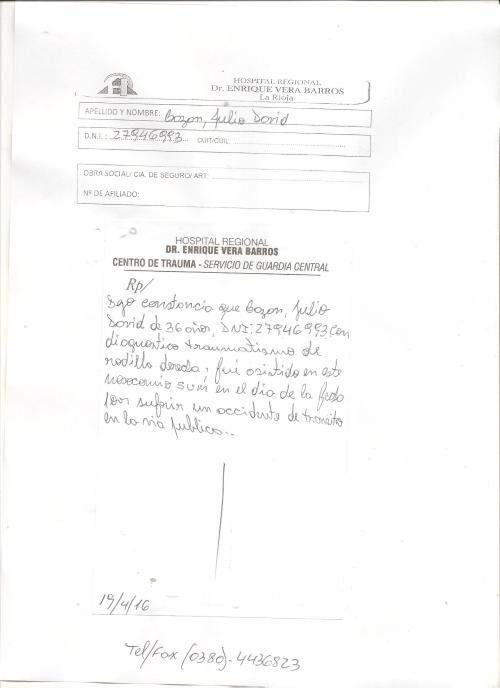 HOSPITAL REGIONAL
Dr. ENRIQUE VERA BARROS
La Rioja
APELLIDO Y NOMBRE: Bazan, Julio David
D.N.I.: 27946993 CUIT/CUIL:
OBRA SOCIAL/ CIA. DE SEGURO/ ART:
Nº DE AFILIADO:
HOSPITAL REGIONAL
DR. ENRIQUE VERA BARROS
CENTRO DE TRAUMA - SERVICIO DE GUARDIA CENTRAL
Rp/
Dejo constancia que Bazan, Julio
David de 36 años, DNI: 27946993, con
diagnostico traumatismo de
rodilla derecha, fué asistido en este
nosocomio en el dia de la fecha
por sufrir un accidente de transito
en la via publica..
19/4/16
Tel/Fax (0380)-4436823